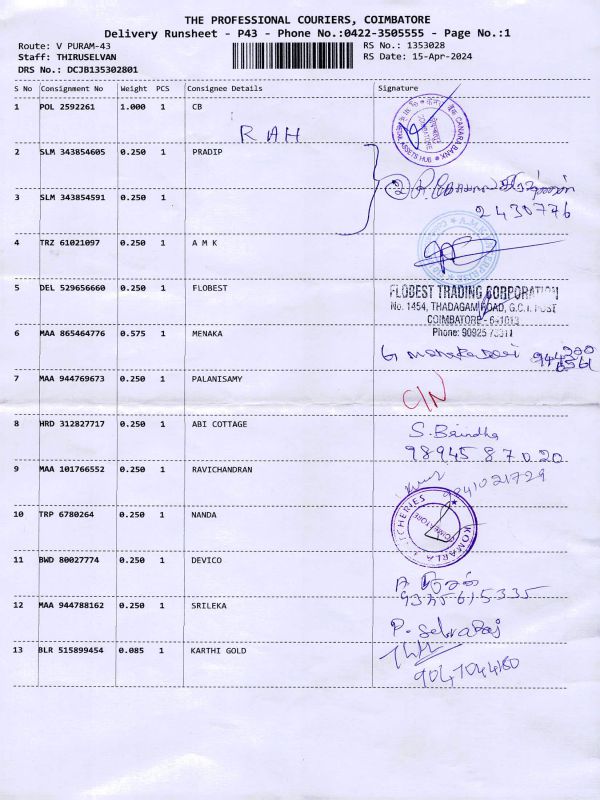 THE PROFESSIONAL COURIERS, COIMBATORE
Delivery Runsheet - P43 - Phone No.:0422-3505555 - Page No.:1
Route: V PURAM-43
RS No.: 1353028
Staff: THIRUSELVAN
RS Date: 15-Apr-2024
DRS No.: DCJB135302801
S No Consignment No Weight PCS Consignee Details Signature
1 POL 2592261 1.000 1 CB
RAH
CANARA BANK
RETAIL ASSETS HUB
COIMBATORE
2 SLM 343854605 0.250 1 PRADIP
3 SLM 343854591 0.250 1
2430776
4 TRZ 61021097 0.250 1 A M K
5 DEL 529656660 0.250 1 FLOBEST
FLOBEST TRADING CORPORATION
No. 1454, THADAGAM ROAD, G.C.T. POST
COIMBATORE - 641013
Phone: 90925
6 MAA 865464776 0.575 1 MENAKA
7 MAA 944769673 0.250 1 PALANISAMY
C/N
8 HRD 312827717 0.250 1 ABI COTTAGE
S. Brindha
98945 87020
9 MAA 101766552 0.250 1 RAVICHANDRAN
9041021729
10 TRP 6780264 0.250 1 NANDA
KOMARLA
COIMBATORE
11 BWD 80027774 0.250 1 DEVICO
9345615335
12 MAA 944788162 0.250 1 SRILEKA
P. Selvaraj
13 BLR 515899454 0.085 1 KARTHI GOLD
9047044160